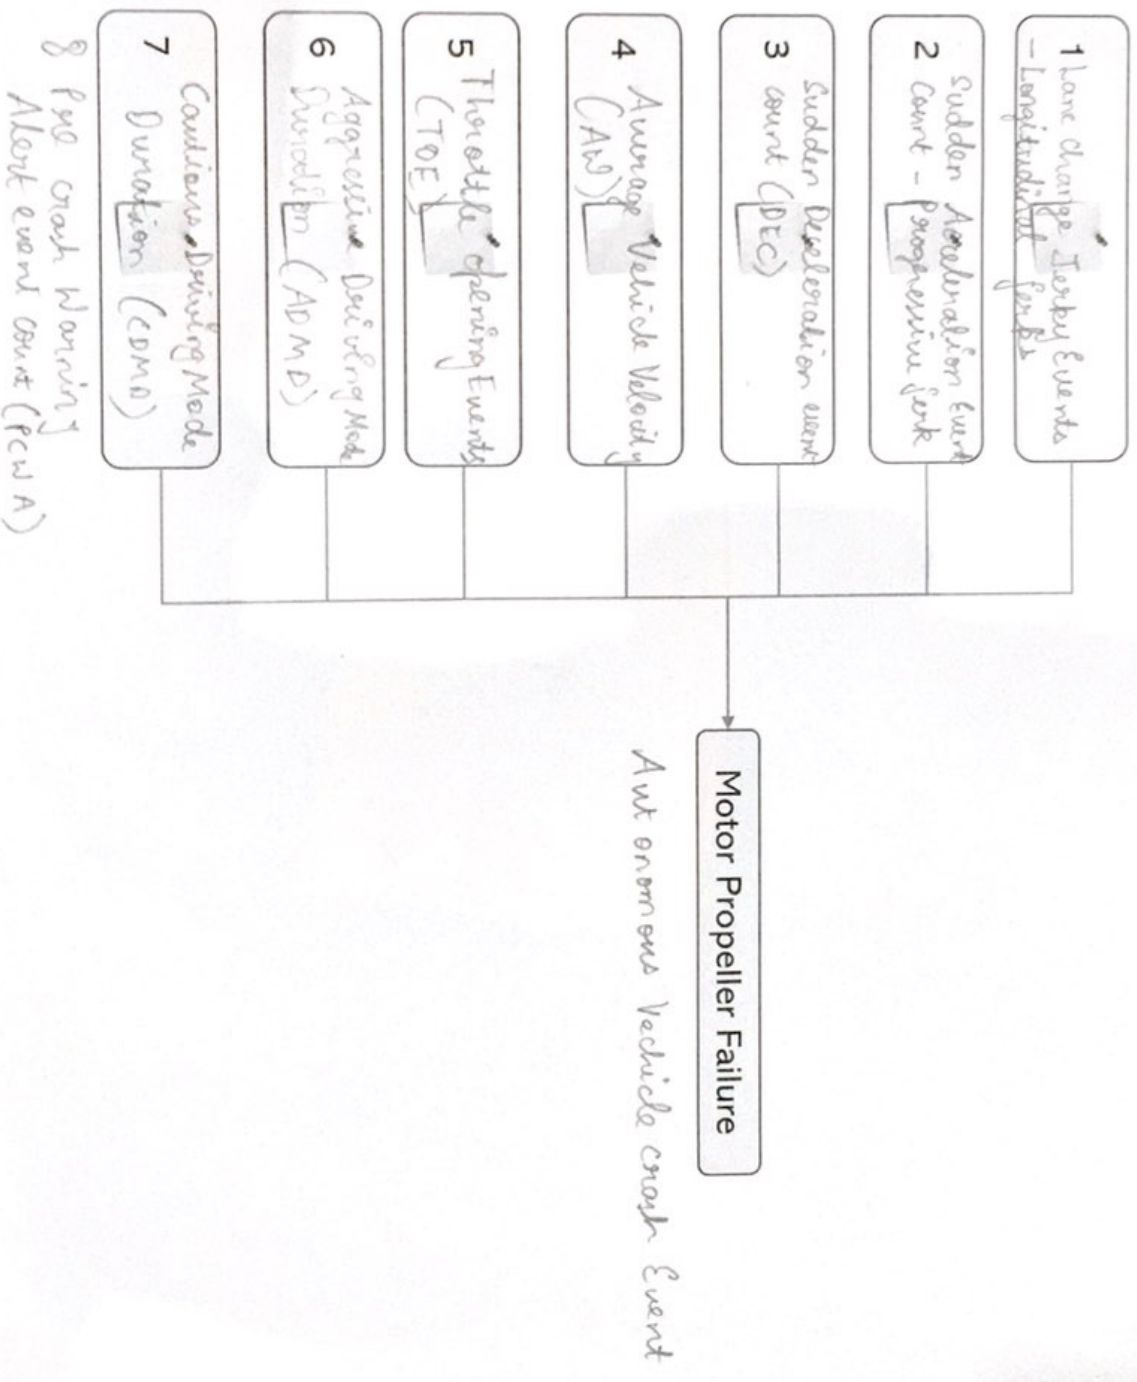 1 Lane change Jerky Events
- Longitudinal Jerks
Sudden Acceleration Event
2 count - Progressive jerk
Sudden Deceleration event
3 count (DEC)
4 Average Vehicle Velocity
5 Throttle Opening Events
(TOE)
Aggressive Driving Mode
6 Duration (ADMD)
Cautious Driving Mode
7 Duration (CDMD)
8 Pre crash Warning
Alert event count (PCWA)
Motor Propeller Failure
Autonomous Vechicle crash Event